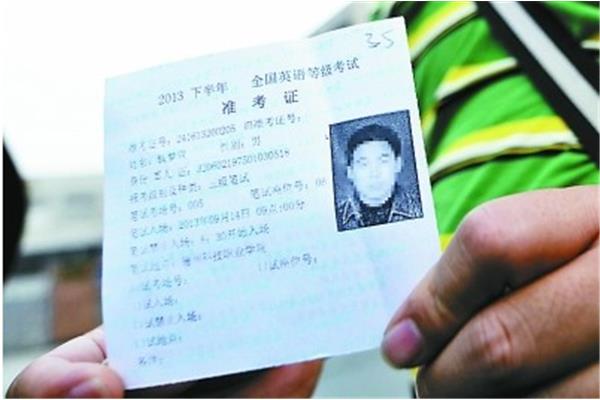 35
2013 下半年 全国英语等级考试
准考证
准考证号: 241613200205 旧准考证号:
姓名: 性别: 男
身份
报考级别及种类: 三级笔试
笔试考场号: 005 笔试座位号: 06
笔试入场: 2013年09月14日 09点:00分
笔试禁止入场: 开始入场
笔试地点: 科技职业学院
口试考场号: 口试座位号:
口试入场:
口试禁止入场:
口试地点:
备注: